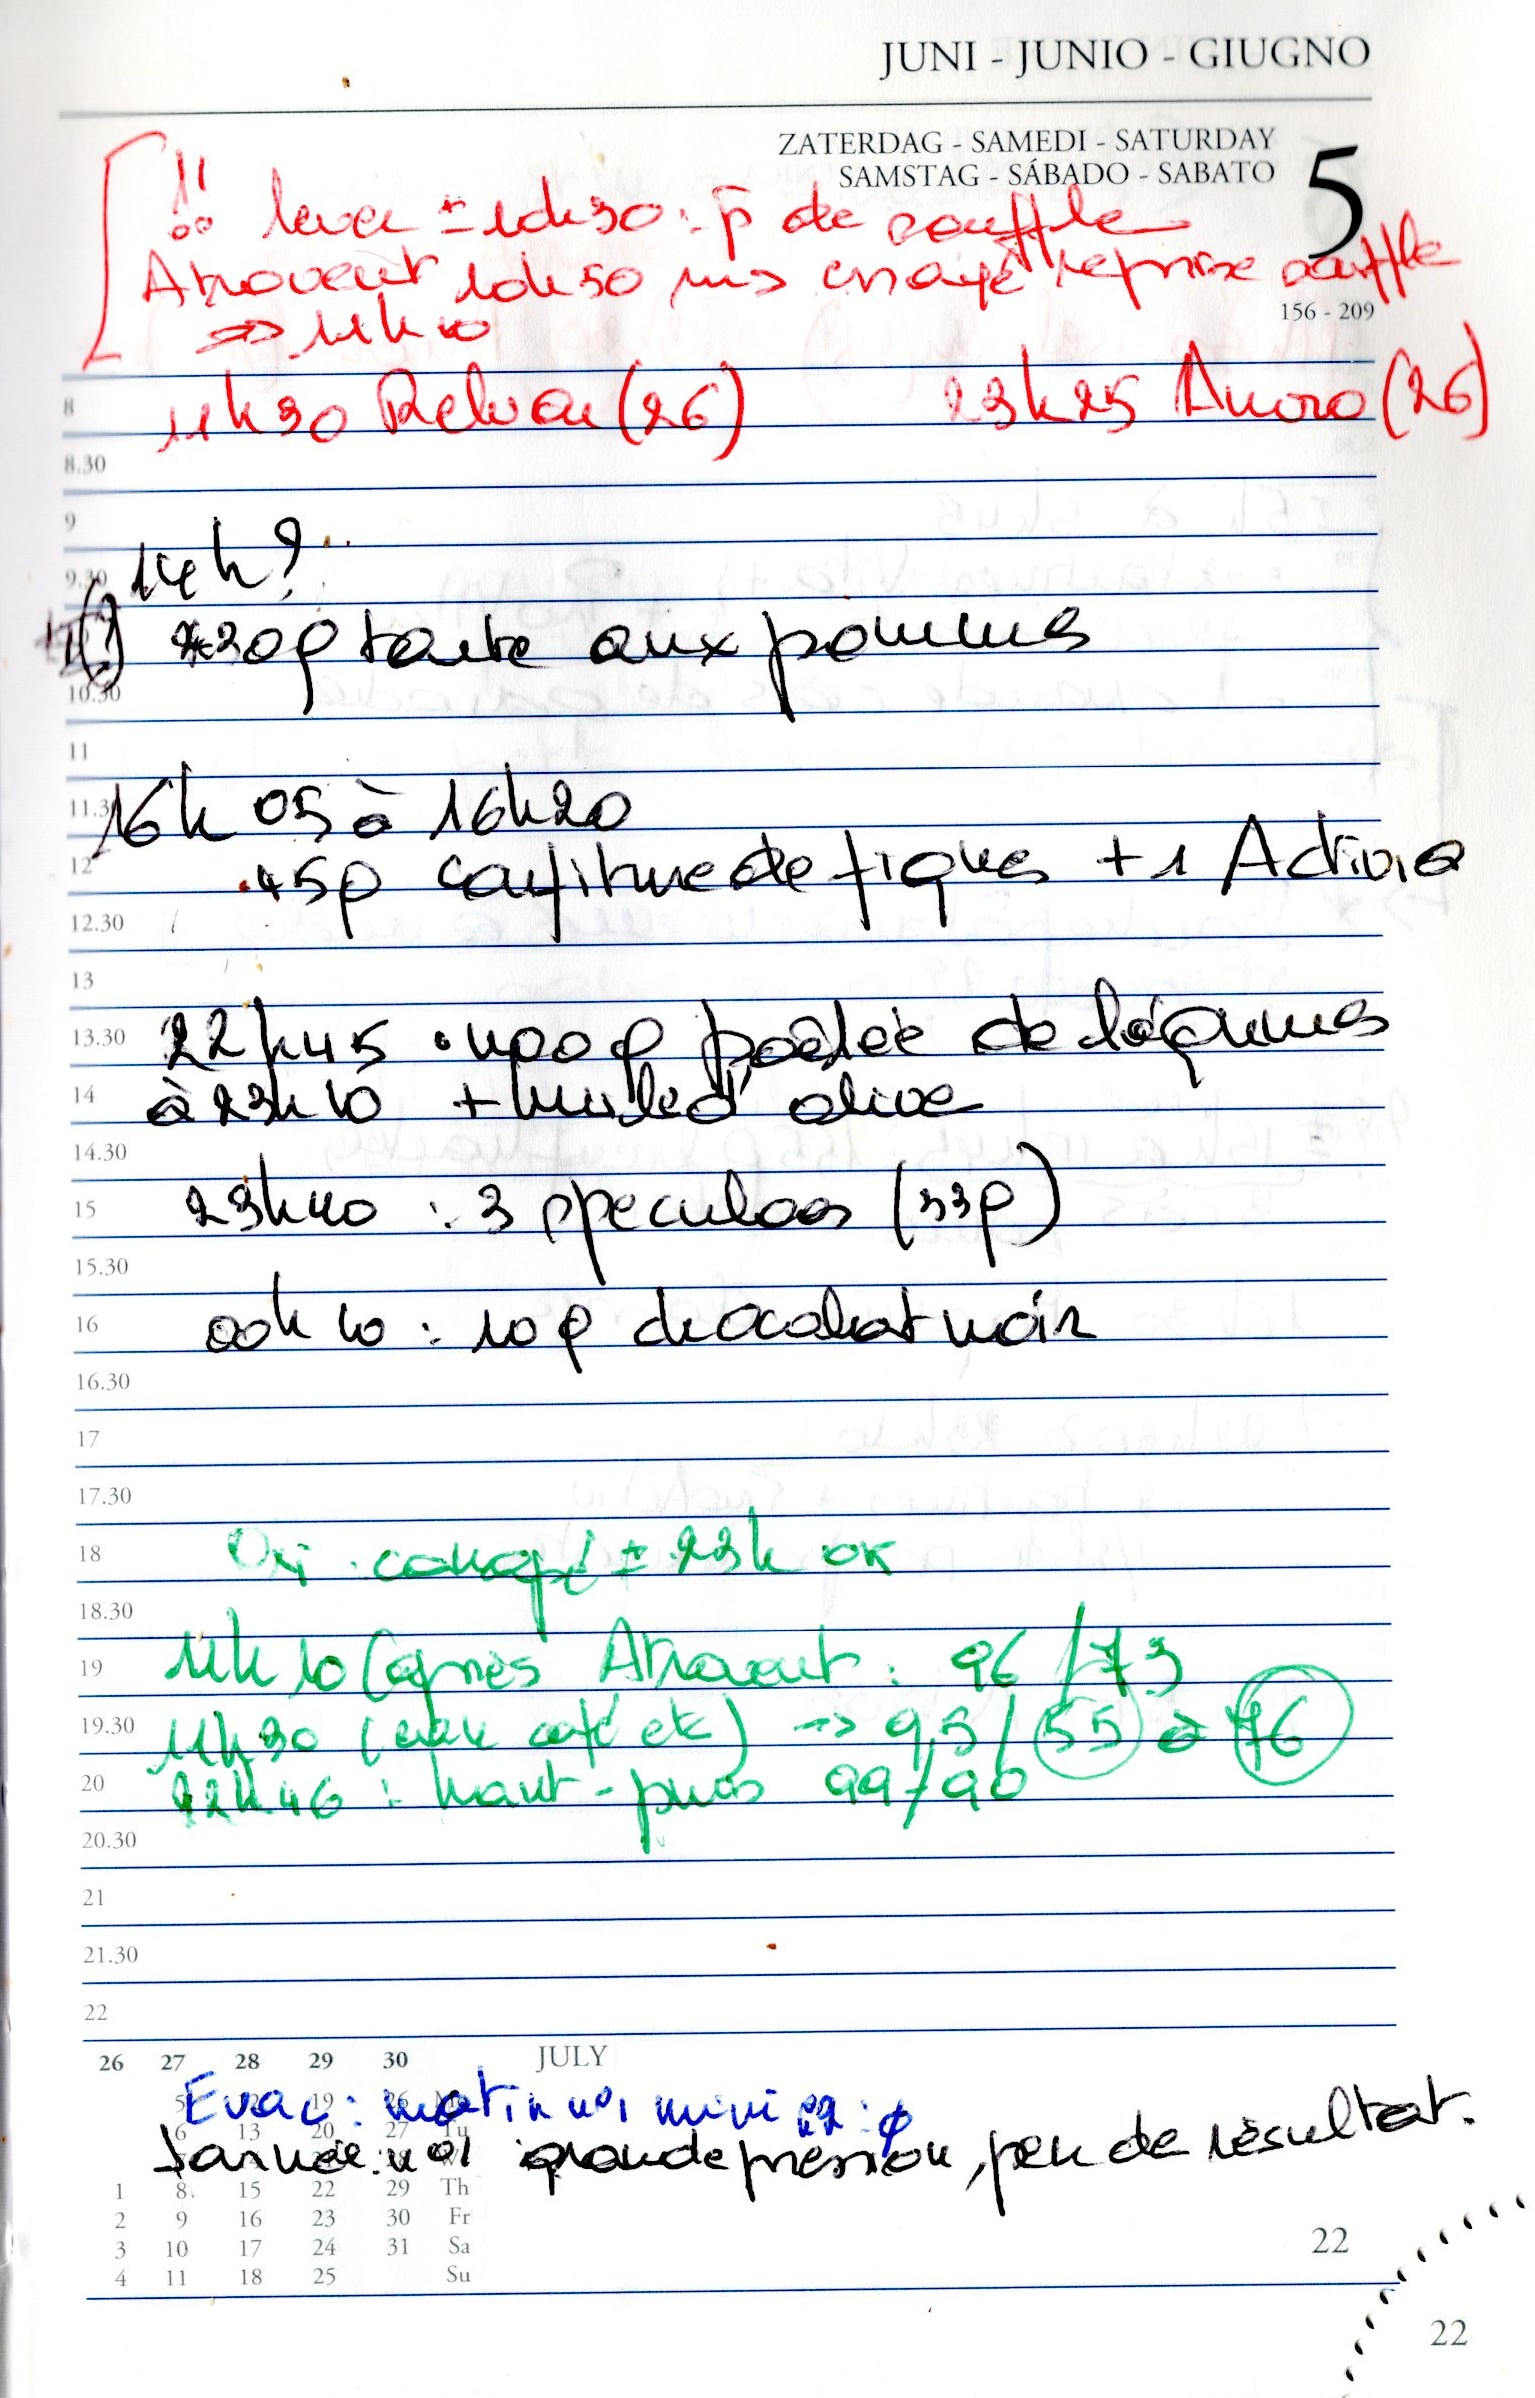 JUNI - JUNIO - GIUGNO
ZATERDAG - SAMEDI - SATURDAY
SAMSTAG - SÁBADO - SABATO
5
!! lever ± 10h30 : p de souffle
Atrovent 10h50 reprise souffle
=> 11h10
156 - 209
11h30 Relvar (26) 23h25 Anoro (26)
8
8.30
9
14h?
9.30
230g tarte aux pommes
10.30
11
16h05 à 16h20
11.30
12
.45g confiture de figues + 1 Activia
12.30
13
22h45 . 400g poêlée de légumes
13.30
à 23h10 + huile d'olive
14
14.30
23h40 : 3 speculoos (33g)
15
15.30
00h10 : 10g chocolat noir
16
16.30
17
17.30
Oxi . ± 23h OK
18
18.30
11h10 (après Atrovent : 96/73
19
11h30 (café etc) -> 95/55 à 76
19.30
22h46 : haut-puis 99/90
20
20.30
21
21.30
22
26 27 28 29 30 JULY
Evac : matin n°1 mini n2 : φ
5 12 19 26 Mo
6 13 20 27 Tu
Journée : n°1 grande pression, peu de résultat.
1 8 15 22 29 Th
2 9 16 23 30 Fr
3 10 17 24 31 Sa
4 11 18 25 Su
22
22